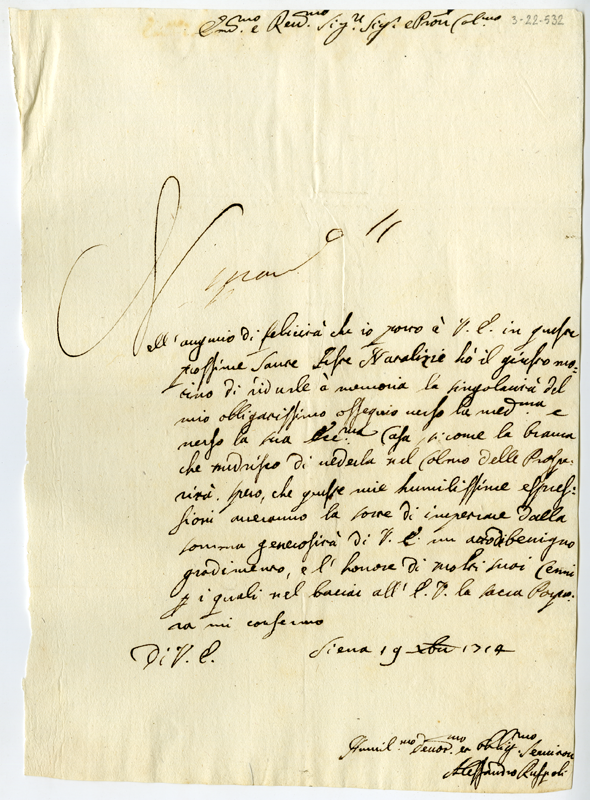 Em.mo e Rev.mo Sig.re Sig.r e Pron Col.mo
3-22-532
Nell'augurio di felicità che io porto à V. E. in queste
prossime Sante Feste Natalizie hò il giusto mo-
tivo di ridurle à memoria la singolarità del
mio obligatissimo ossequio verso la med.ma e
verso la sua Ecc.ma Casa, sicome la brama
che nudrisco di vederla nel Colmo delle Prospe-
rità. Spero, che queste mie humilissime espres-
sioni averanno la sorte di impetrare dalla
somma generosità di V. E. un atto di benigno
gradimento, e l'honore di molti suoi Cenni
p i quali nel baciar all'E. V. la sacra Porpo-
ra mi confermo
Di V. E. Siena 19 Xbre 1714
Humil.mo Devot.mo et oblig.mo Servitore
Alessandro Ruspoli